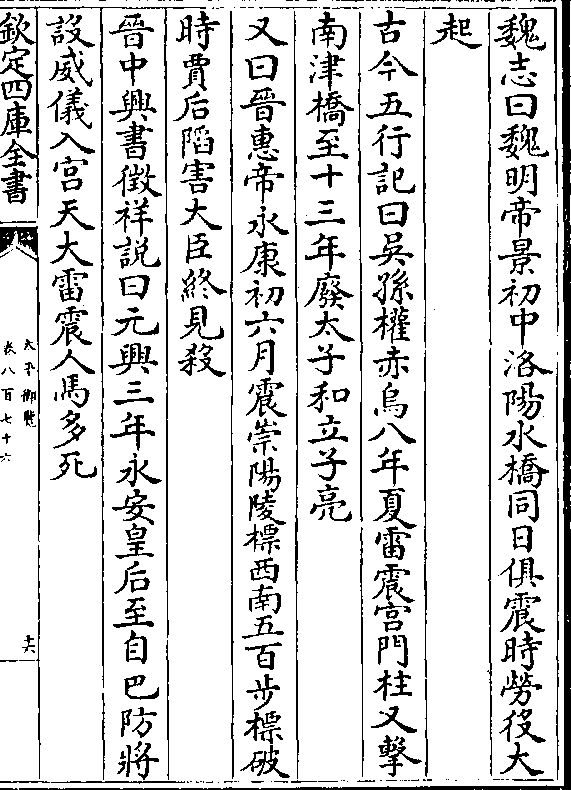 魏志曰魏明帝景初中洛陽水橋同日俱震時勞役大
起
古今五行記曰吳孫權赤烏八年夏雷震宮門柱又擊
南津橋至十三年廢太子和立子亮
又曰晉惠帝永康初六月震崇陽陵標西南五百步標破
時賈后陷害大臣終見殺
晉中興書徵祥説曰元興三年永安皇后至自巴防將
設威儀入宮天大雷震人馬多死
欽定四庫全書
太平御覽
卷八百七十六
十六